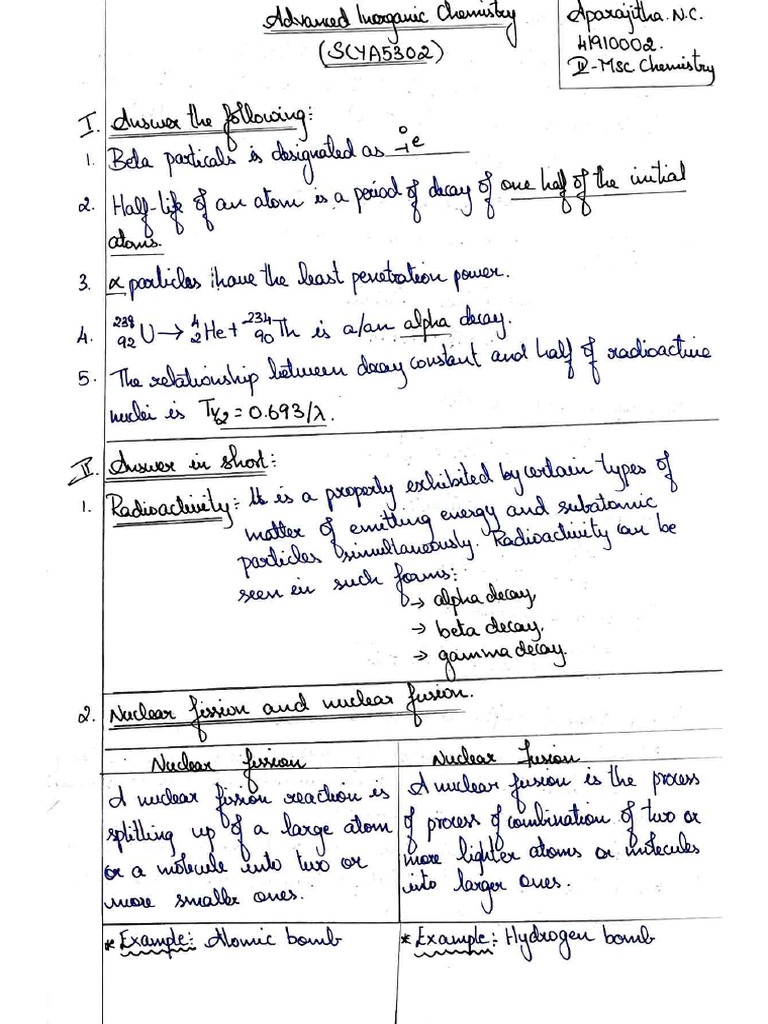 Advanced Inorganic Chemistry
(SCYA5302)
Aparajitha. N.C.
41910002.
II - MSc Chemistry
I. Answer the following:
1. Beta particals is designated as ⁰₋₁e
2. Half-life of an atom is a period of decay of one half of the initial
atoms.
3. α particles have the least penetration power.
4. ²³⁸₉₂U → ⁴₂He + ²³⁴₉₀Th is a/an alpha decay.
5. The relationship between decay constant and half of radioactive
nuclei is T½ = 0.693/λ.
II. Answer in short:
1. Radioactivity: It is a property exhibited by certain types of
matter of emitting energy and subatomic
particles simultaneously. Radioactivity can be
seen in such forms:
→ alpha decay,
→ beta decay,
→ gamma decay.
2. Nuclear fission and nuclear fusion.
Nuclear fission
A nuclear fission reaction is
splitting up of a large atom
or a molecule into two or
more smaller ones.
* Example: Atomic bomb
Nuclear fusion
A nuclear fusion is the process
of process of combination of two or
more lighter atoms or molecules
into larger ones.
* Example: Hydrogen bomb